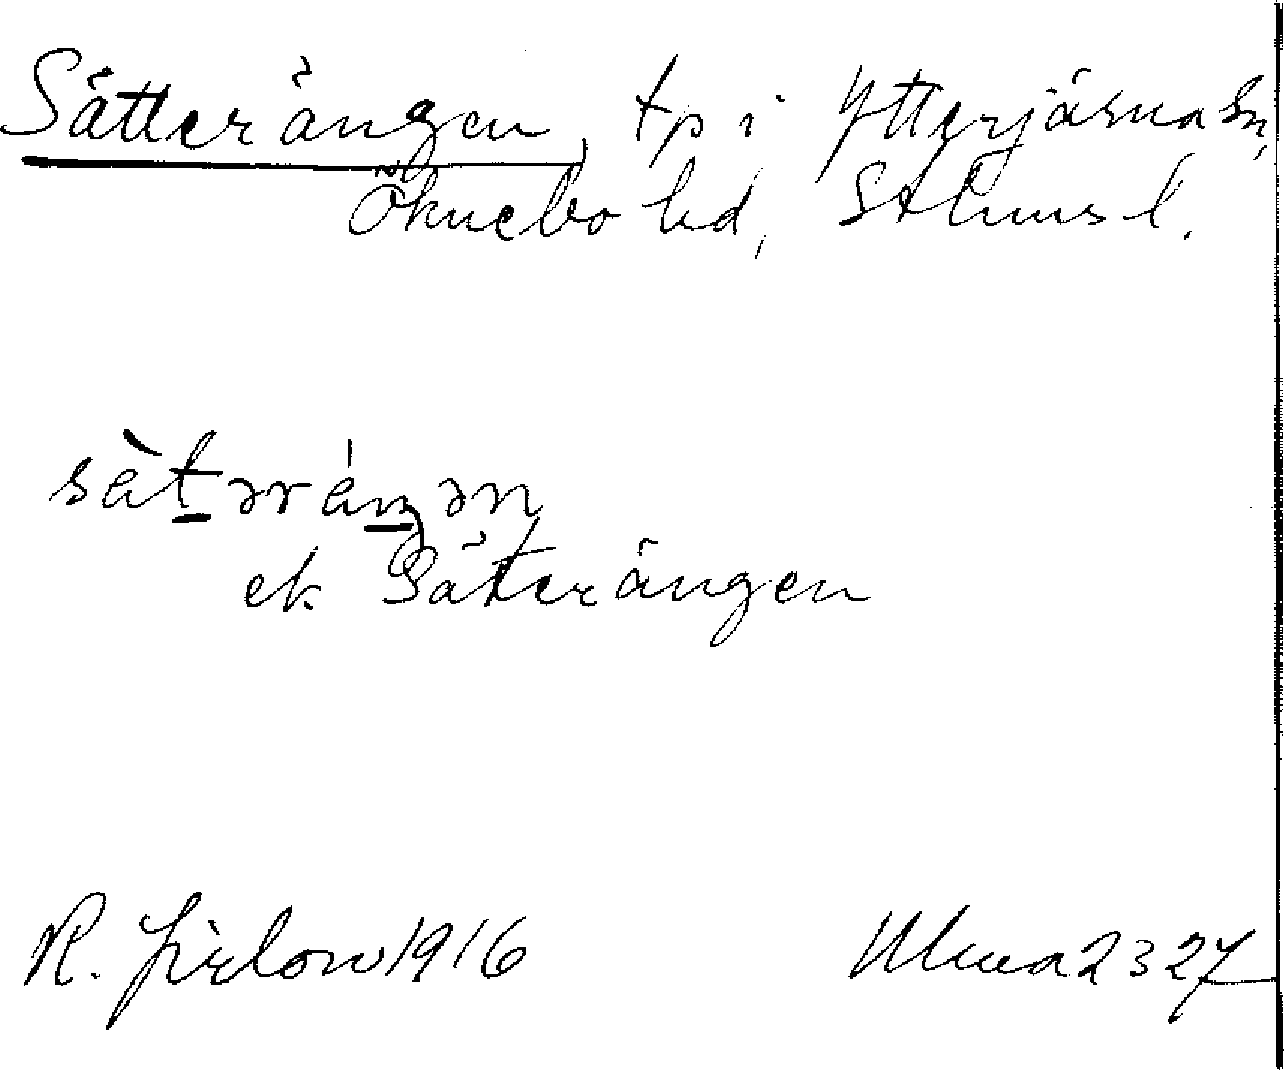 Sätterängen, tp i Ytterjärna sn,
Öknebo hd, Sthms l.
sàtəráŋən
ek Säterängen
R. Jirlow 1916 Ulma 2327